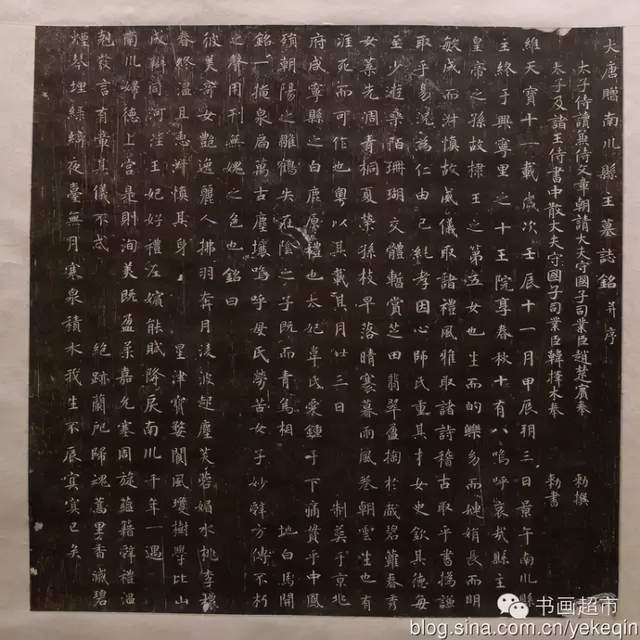 大唐贈南川縣主墓誌銘 并序
太子侍讀兼侍文章朝請大夫守國子司業臣趙楚賓奉 勅撰
太子及諸王侍書中散大夫守國子司業臣韓擇木奉 勅書
維天寶十一載歲次壬辰十一月甲辰朔三日景午南川縣
主終于興寧里之十王院享春秋十有八嗚呼哀哉縣主
皇帝之孫故棣王之第五女也生而的皪而婉娟長而明
敏成而淑慎故威儀取諸禮風雅取諸詩稽古取乎書撝謙
取乎易況為仁由己純孝因心師氏重其才女史欽其德每
至少遊桑陌珊瑚交體暫賞芝田翡翠盈掬於戲碧蘿春秀
女菜先凋青桐夏榮孫枝早落晴寒暮雨風卷朝雲生也有
涯死而可作也粵以其載其月廿三日 制葬于京兆
府咸寧縣之白鹿原禮也太妃卓氏愛鍾于下痛貫乎中鳳
殞朝陽之雛鶴失在陰之子既而青烏相 地白馬開
銘一掩泉扃萬古塵壤嗚呼母氏勞苦女子妙方傳不朽
之聲用刊無媿之色也銘曰
彼美帝女艷逸麗人拂羽奔月淩波起塵芙蓉媚水桃李穠
春終溫且惠淑慎其身 星津寶婺閬風瓊樹學比山
成辯同河注王妃好禮左嬪能賦降戾南川千年一遇
南川婦德上宮是則洵美既盈柔嘉允塞周旋蘊藉辭禮溫
剋發言有章其儀不忒 絕跡蘭阤歸魂蒿里香滅碧
煙琴埋綠綺夜臺無月寒泉積水我生不辰寘寘已矣
书画超市
blog.sina.com.cn/yekeqin